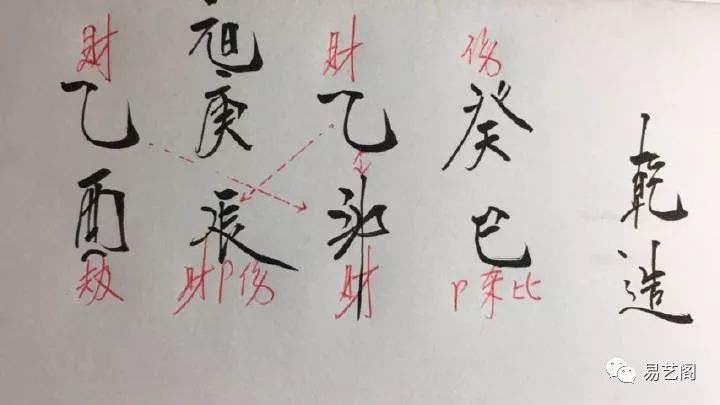 乾造
伤
癸巳
P杀比
财
乙卯
财
日元
庚辰
财P伤
财
乙酉
劫
易艺阁